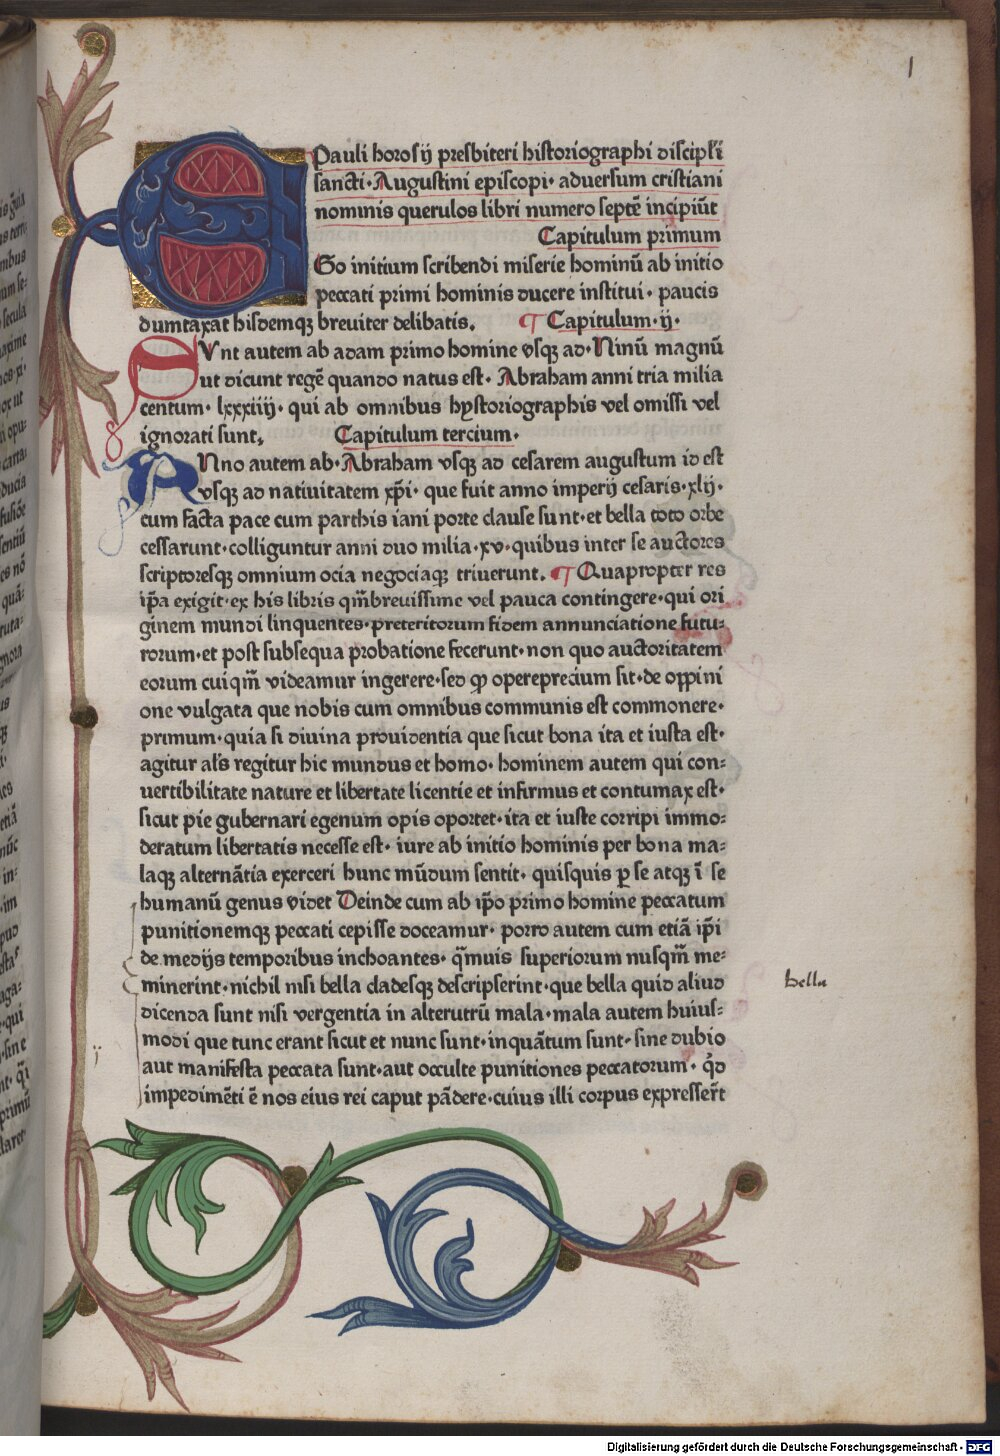 1
Pauli horosij presbiteri historiographi discipl'i
sancti·Augustini episcopi· aduersum cristiani
nominis querulos libri numero septē incipiūt
Capitulum primum
EGo initium scribendi miserie hominū ab initio
peccati primi hominis ducere institui· paucis
dumtaxat hisdemqꝫ breuiter delibatis. ¶ Capitulum·ij·
SVnt autem ab adam primo homine vsqꝫ ad·Ninū magnū
ut dicunt regē quando natus est· Abraham anni tria milia
centum· lxxxiiij· qui ab omnibus hystoriographis vel omissi vel
ignorati sunt, Capitulum tercium·
ANno autem ab·Abraham vsqꝫ ad cesarem augustum id est
vsqꝫ ad natiuitatem xp̄i· que fuit anno imperij cesaris·xlij·
cum facta pace cum parthis iani porte clause sunt·et bella toto orbe
cessarunt·colliguntur anni duo milia·xv·quibus inter se auctores
scriptoresqꝫ omnium ocia negociaqꝫ triuerunt. ¶ Quapropter res
ip̄a exigit·ex his libris qm̄breuissime vel pauca contingere·qui ori
ginem mundi linquentes·preteritorum fidem annunciatione futu⸗
rorum·et post subsequa probatione fecerunt·non quo auctoritatem
eorum cuiqm̄ videamur ingerere·sed ꝙ opereprecium sit·de oppini
one vulgata que nobis cum omnibus communis est commonere·
primum·quia si diuina prouidentia que sicut bona ita et iusta est·
agitur al's regitur hic mundus et homo· hominem autem qui con⸗
uertibilitate nature et libertate licentie et infirmus et contumax est·
sicut pie gubernari egenum opis oportet·ita et iuste corripi immo⸗
deratum libertatis necesse est· iure ab initio hominis per bona ma⸗
laqꝫ alternātia exerceri hunc mūdum sentit· quisquis ꝑ se atqꝫ ī se
humanū genus videt Deinde cum ab ip̄o primo homine peccatum
punitionemqꝫ peccati cepisse doceamur· porro autem cum etiā ip̄i
de medijs temporibus inchoantes· qm̄uis superiorum nusqm̄ me⸗
minerint·nichil nisi bella cladesqꝫ descripserint·que bella quid aliud
bella
dicenda sunt nisi vergentia in alterutrū mala·mala autem huius⸗
modi que tunc erant sicut et nunc sunt·inquātum sunt·sine dubio
aut manifesta peccata sunt·aut occulte punitiones peccatorum· qd̄
impedimēti ē nos eius rei caput pādere·cuius illi corpus expresser̄t
Digitalisierung gefördert durch die Deutsche Forschungsgemeinschaft - DFG